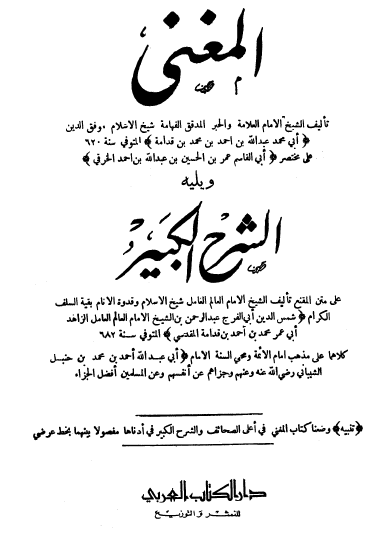 المغني
تأليف الشيخ الامام العلامة والحبر المدقق الفهامة شيخ الاسلام موفق الدين
﴿ أبي محمد عبدالله بن احمد بن محمد بن قدامة ﴾ المتوفي سنة ٦٢٠
على مختصر ﴿ أبي القاسم عمر بن الحسين بن عبدالله بن احمد الخرقي ﴾
ويليه
الشرح الكبير
على متن المقنع تأليف الشيخ الامام العالم العامل شيخ الاسلام وقدوة الانام بقية السلف
الكرام ﴿ شمس الدين أبي الفرج عبدالرحمن بن الشيخ الامام العالم العامل الزاهد
أبي عمر محمد بن أحمد بن قدامة المقدسي ﴾ المتوفى سنة ٦٨٢
كلاهما على مذهب امام الأئمة ومحيي السنة الامام ﴿ أبي عبدالله أحمد بن محمد بن حنبل
الشيباني رضي الله عنه وعنهم وجزاهم عن أنفسهم وعن المسلمين أفضل الجزاء ﴾
﴿ تنبيه ﴾ وضعنا كتاب المغني في أعلى الصحائف والشرح الكبير في أدناها مفصولا بينهما بخط عرضي
دار الكتاب العربي
للنشر والتوزيع